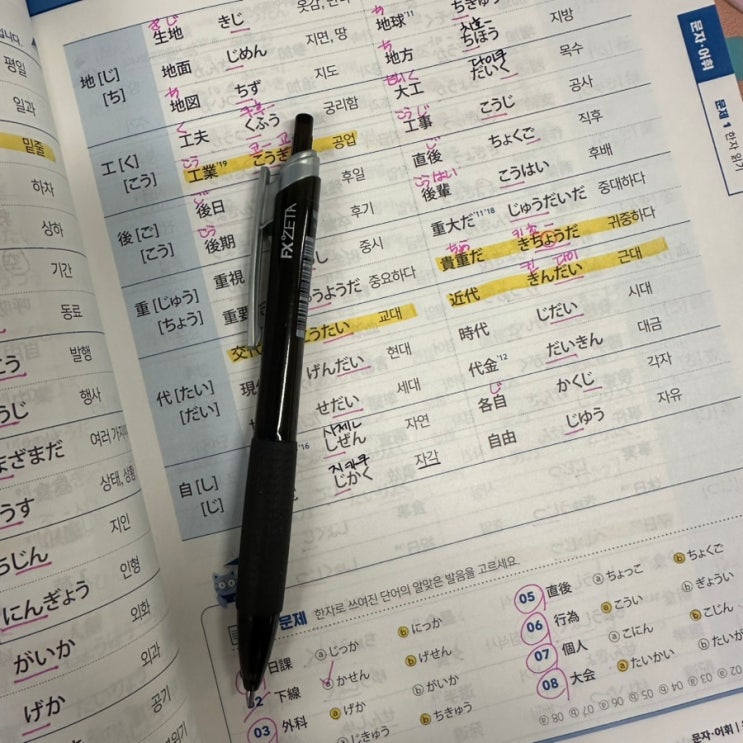 니다.
평일
일과
밑줄
하차
상하
기간
동료
발행
행사
여러 가지
상태, 상황
지인
인형
외화
외과
공기
まざまだ
にんぎょう
がいか
げか
地 [じ]
[ち]
生地 きじ
地面 じめん 지면, 땅
地図 ちず 지도
地球'11 ちきゅう
地方 ちほう 지방
工 [く]
[こう]
工夫 くふう 궁리함
工業'19 こうぎ 공업
大工 だいく 목수
工事 こうじ 공사
後 [ご]
[こう]
後日 후일
後期 후기
直後 ちょくご 직후
後輩 こうはい 후배
重 [じゅう]
[ちょう]
重視 し 중시
重要 うようだ 중요하다
重大だ'11'18 じゅうだいだ 중대하다
貴重だ きちょうだ 귀중하다
代 [たい]
[だい]
交代 うたい 교대
現代 げんだい 현대
せだい 세대
近代 きんだい 근대
時代 じだい 시대
代金'12 だいきん 대금
自 [し]
[じ]
'16 しぜん 자연
じかく 자각
各自 かくじ 각자
自由 じゆう 자유
문자·어휘
문제 1 한자 읽기
문제 한자로 쓰여진 단어의 알맞은 발음을 고르세요.
日課 ⓐ じっか ⓑ にっか
下線 ⓐ かせん ⓑ げせん
03 外科 ⓐ げか ⓑ がいか
ⓐ じきゅう ⓑ ちきゅう
05 直後 ⓐ ちょっこ ⓑ ちょくご
06 行為 ⓐ こうい ⓑ ぎょうい
07 個人 ⓐ こにん ⓑ こじん
08 大会 ⓐ たいかい ⓑ たいが
문자·어휘